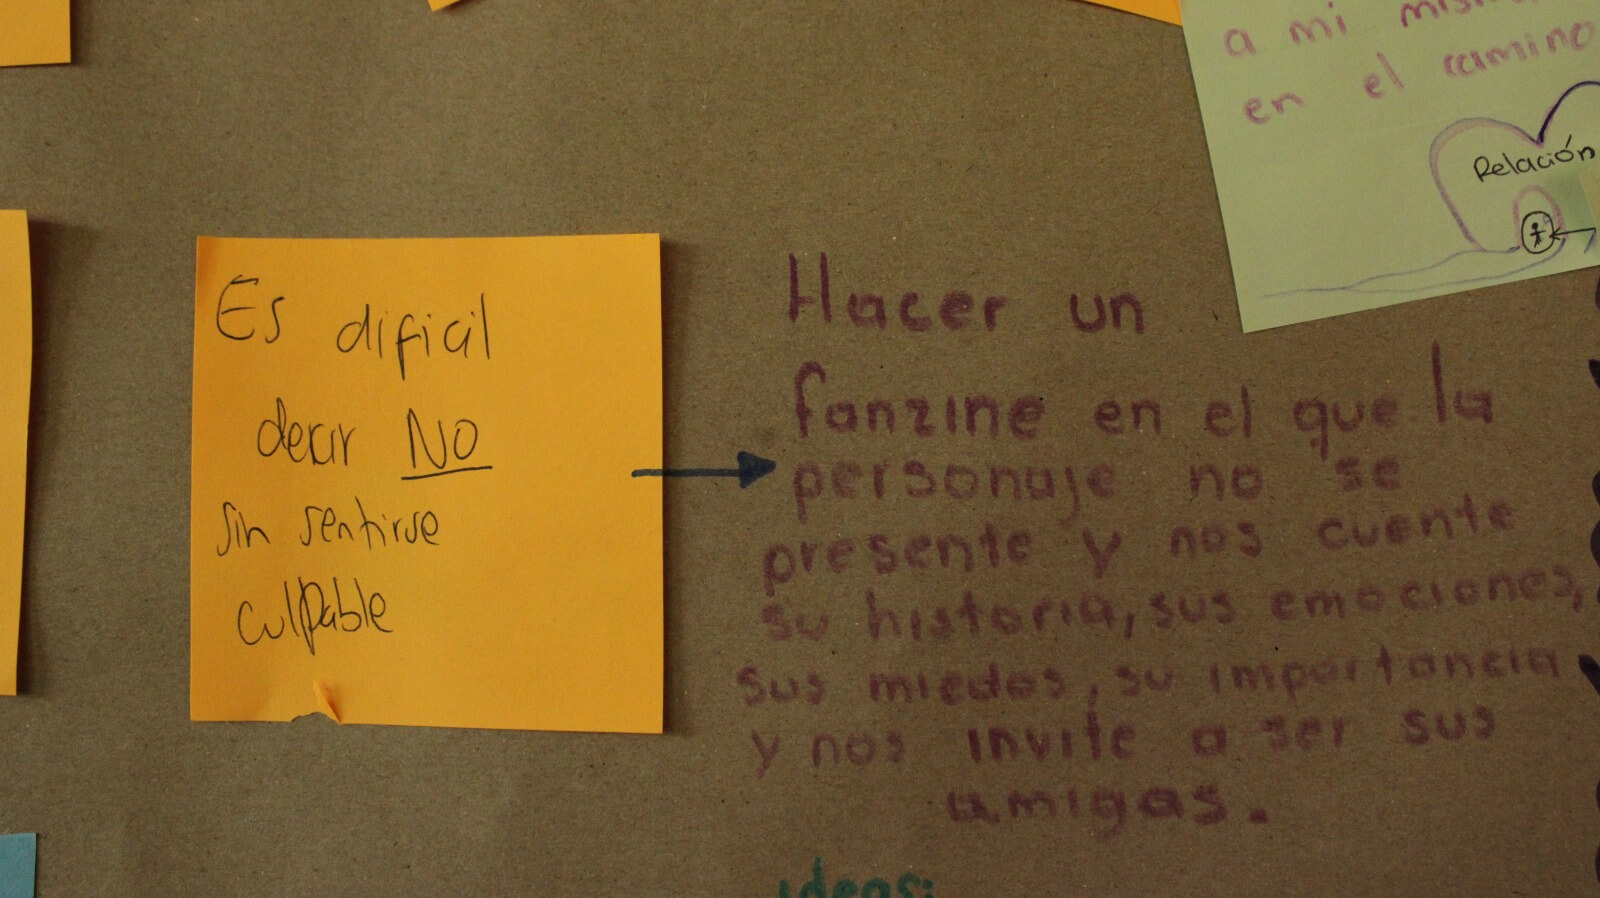 a mi
en el camino
Relación
Es dificil
decir NO
sin sentirse
culpable
Hacer un
fanzine en el que la
personaje no se
presente y nos cuente
su historia, sus emociones,
sus miedos, su importancia
y nos invite a ser sus
amigas.
ideas: